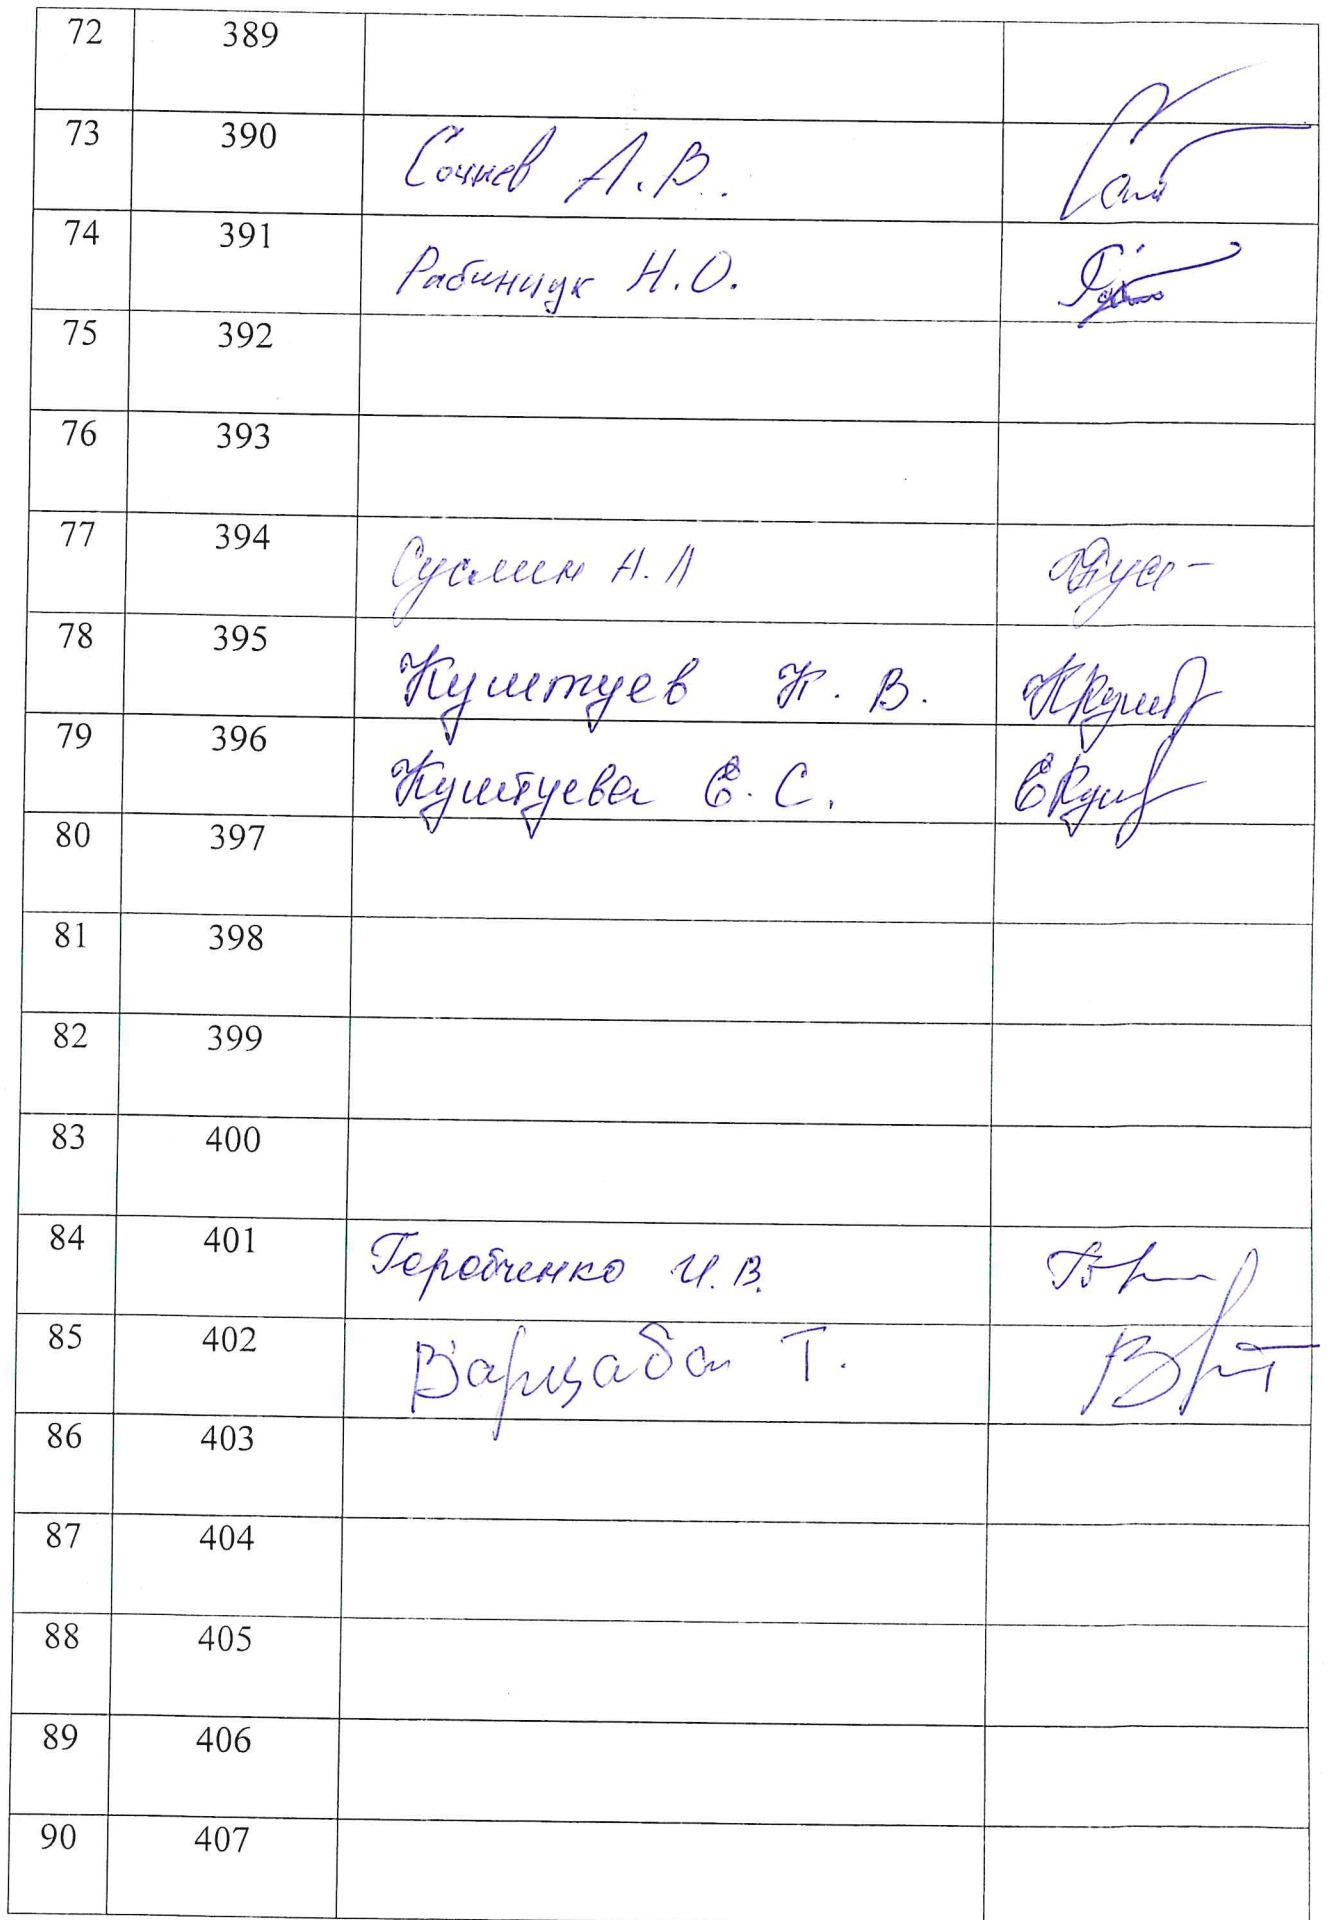 72 389
73 390 Сочнев А.В.
74 391 Рабинчук Н.О.
75 392
76 393
77 394 Суслин А.Л
78 395 Куштуев К. В.
79 396 Куштуева Е. С.
80 397
81 398
82 399
83 400
84 401 Горобченко И.В.
85 402 Варцаба Т.
86 403
87 404
88 405
89 406
90 407